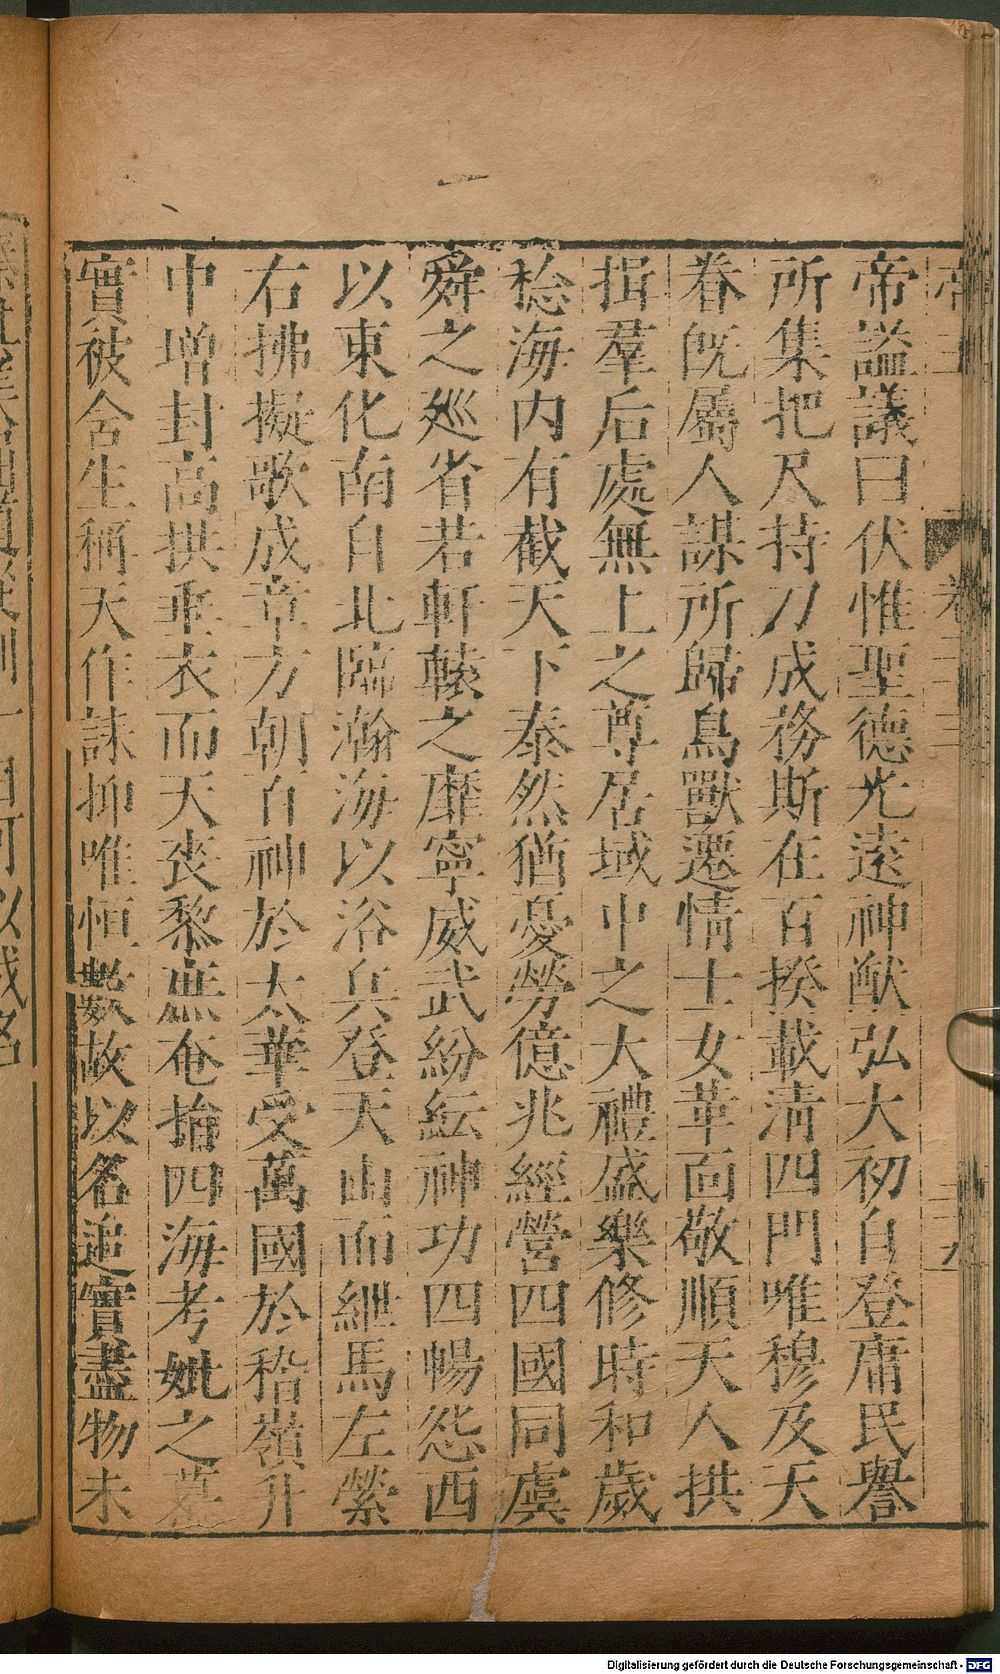 帝謚議曰伏惟聖德光遠神猷弘大初自登庸民譽
所集把尺持刀成務斯在百揆載清四門唯穆及天
眷既屬人謀所歸鳥獸遷情士女革面敬順天人拱
揖羣后處無上之尊居域中之大禮盛樂修時和歲
稔海内有截天下泰然猶憂勞億兆經營四國同虞
舜之廵省若軒轅之靡寧威武紛紜神功四暢怨西
以東化南自北臨瀚海以浴兵登天山而紲馬左縈
右拂擬歌成章方朝百神於太華受萬國於稽嶺升
中增封高拱垂衣而天喪黎庶奄捨四海考妣之慕
實被含生稱天作誄抑唯恒數故以名追實盡物未
Digitalisierung gefördert durch die Deutsche Forschungsgemeinschaft - DFG